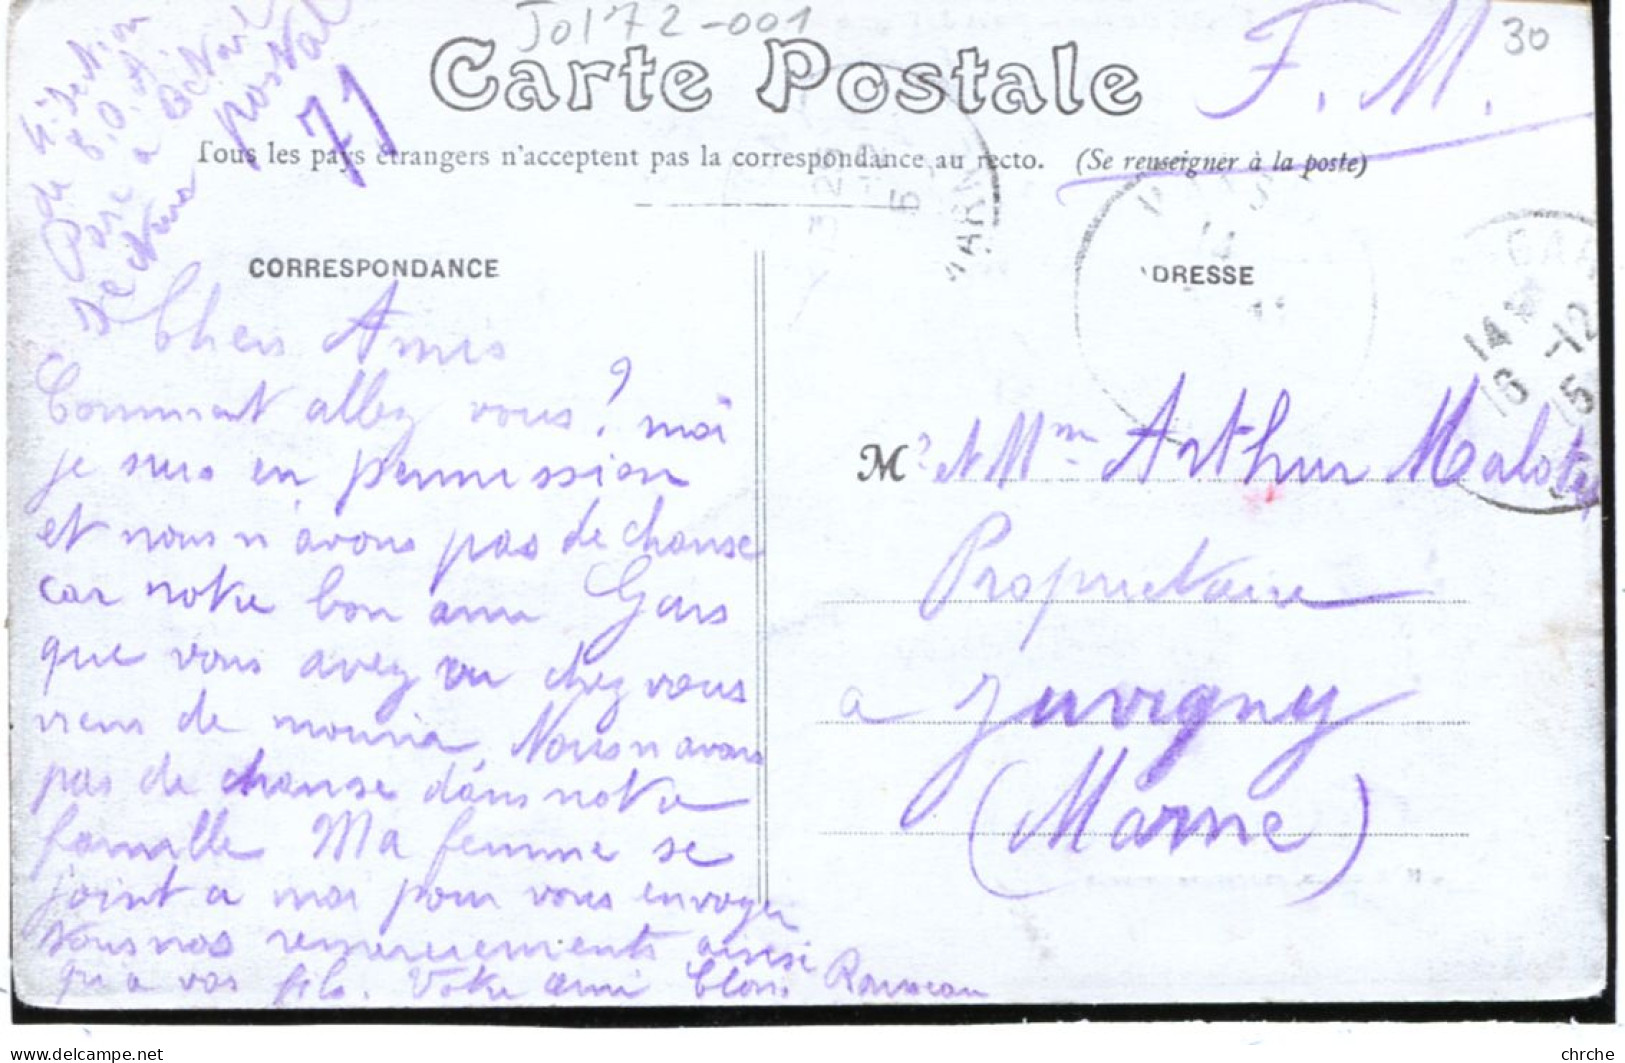 J0172-001
30
Carte Postale
F. M.
Tous les pays étrangers n'acceptent pas la correspondance au recto. (Se renseigner à la poste)
4e section
de
Parc a
Secteur postal
71
CORRESPONDANCE
Chers Amis
Comment allez vous? moi
je suis en permission
et nous n'avons pas de chanse
car notre bon ami Gars
que vous avez vu chez vous
viens de mourir, Nous n avons
pas de chanse dans notre
famille Ma femme se
joint a moi pour vous envoyer
tous nos remerciements ainsi
qu'a vos fils. Votre ami Rousseau
ADRESSE
14
-12
15
M. et Mme Arthur
Propriétaire
a Juvigny
(Marne)
delcampe.net
chrche